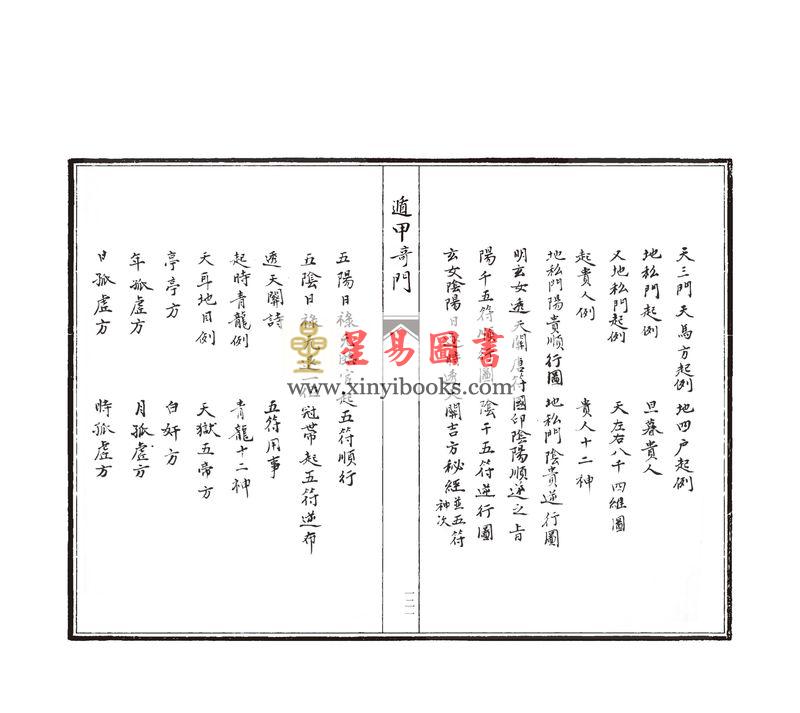 天三門天馬方起例 地四户起例
地私門起例 旦暮貴人
又地私門起例 天左右八千四維圖
起貴人例 貴人十二神
地私門陽貴順行圖 地私門陰貴逆行圖
明玄女透天關唐符國印陰陽順逆之旨
陽干五符順行圖 陰干五符逆行圖
玄女陰陽日 透天關吉方秘經並五符神次
遁甲奇門
一二一
五陽日祿 起五符順行
五陰日祿 冠帶起五符逆布
透天關詩 五符用事
起時青龍例 青龍十二神
天耳地目例 天獄五帝方
亭亭方 白奸方
年孤虛方 月孤虛方
日孤虛方 時孤虛方
星易圖書
www.xinyibooks.com